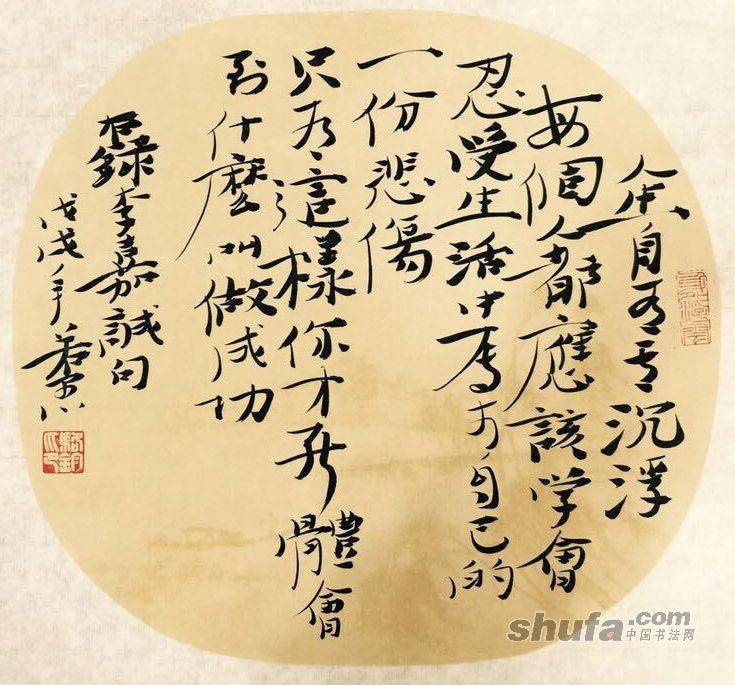 人生自有其沉浮
每個人都應該学會
忍受生活中属於自己的
一份悲傷
只有這樣你才能體會
到什麼叫做成功
右録李嘉誠句
戊戌年
shufa.com
中国书法网